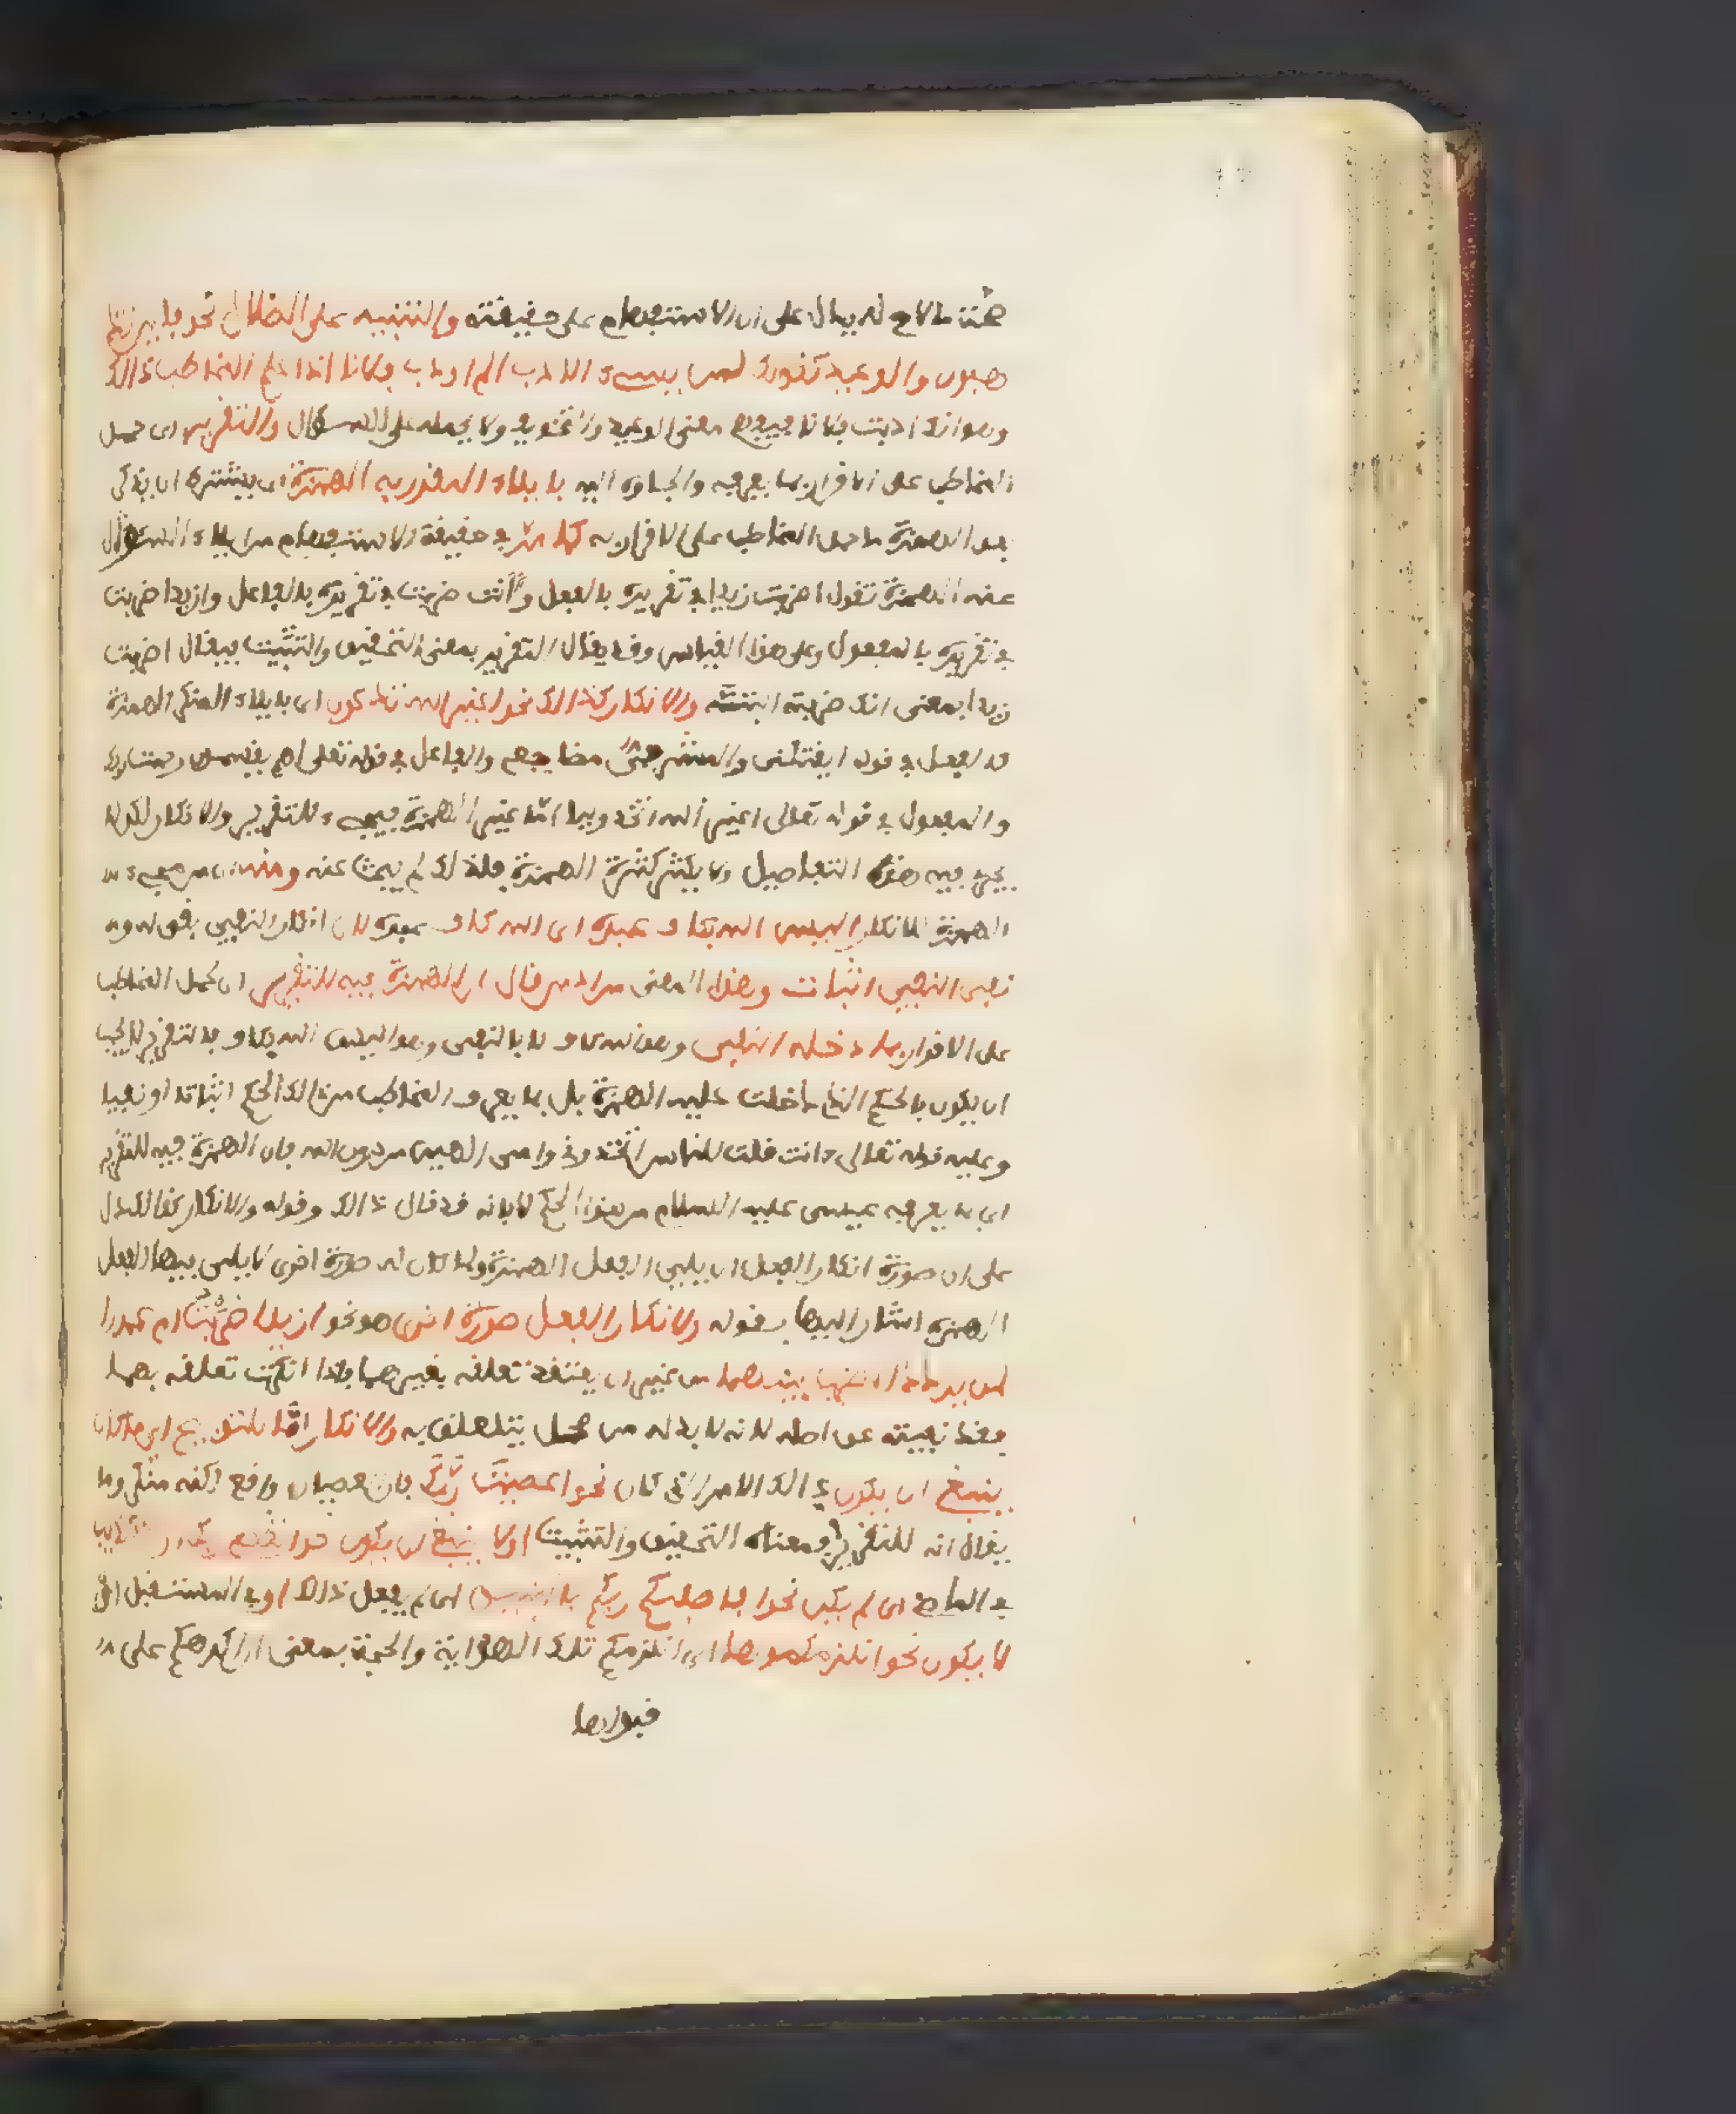 على ان الاستفهام على حقيقته والتنبيه على الضلال نحو فاين تذ
هبون والوعيد كقولك لمن يسىء الادب الم اودب فلانا اذا علم المخاطب ذالك
وهو انك ادبت فلانا فيفهم معنى الوعيد والتخويف ولا يحمله على السؤال والتقرير اى حمل
المخاطب على الاقرار بما يعرفه والجاءه اليه بايلاء المقرر به الهمزة اى بشرط ان يذكر
بعد الهمزة ما حمل المخاطب على الاقرار به كما مر في حقيقة الاستفهام من ايلاء المسئول
عنه الهمزة تقول اضربت زيدا في تقريره بالفعل وأانت ضربت في تقريره بالفاعل وازيدا ضربت
في تقريره بالمفعول وعلى هذا القياس وقد يقال التقرير بمعنى التحقيق والتثبيت فيقال اضربت
زيدا بمعنى انك ضربته البتة والانكار كذالك نحو اغير الله تدعون اى بايلاء المنكر الهمزة
كالفعل في قوله ايقتلنى والمشرفى مضاجعى والفاعل في قوله تعلى اهم يقسمون رحمت ربك
والمفعول في قوله تعالى اغير الله اتخذ وليا اما غير الهمزة فيجىء للتقرير والانكار لكن لا
يجرى فيه هذه التفاصيل ولا يكثر كثرة الهمزة فلذالك لم يبحث عنه ومنه اى من مجىء
الهمزة للانكار اليس الله بكاف عبده اى الله كاف عبده لان انكار النفي نفى له و
نفى النفي اثبات وهذا المعنى مراد من قال ان الهمزة فيه للتقرير اى لحمل المخاطب
على الاقرار بما دخله النفى وهو الله كاف لا بالنفى وهو اليس الله بكاف فالتقرير لا يجب
ان يكون بالحكم الذى دخلت عليه الهمزة بل بما يعرف المخاطب من ذالك الحكم اثباتا او نفيا
وعليه قوله تعالى ءانت قلت للناس اتخذوني وامى الهين من دون الله فان الهمزة فيه للتقرير
اى بما يعرفه عيسى عليه السلام من هذا الحكم لا بانه قد قال ذالك وقوله والانكار كذالك دل
على ان صورة انكار الفعل ان يلي الفعل الهمزة ولما كان له صورة اخرى لا يلى فيها الفعل
الهمزة اشار اليها بقوله ولانكار الفعل صورة اخرى وهو نحو ازيدا ضربت ام عمرا
لمن يردد الضرب بينهما من غير ان يعتقد تعلقه بغيرهما فاذا انكرت تعلقه بهما
فقد نفيته عن اصله لانه لا بد له من محل يتعلق به والانكار اما للتوبيخ اى ما كان
ينبغى ان يكون ذالك الامر الذى كان نحو اعصيت ربك فان العصيان واقع لكنه منكر وما
يقال انه للتقرير فمعناه التحقيق والتثبيت او لا ينبغى ان يكون نحو اتعصى ربك او للتكذيب
في الماضى اى لم يكن نحو افاصفيكم ربكم بالبنين اى لم يفعل ذالك او في المستقبل اى
لا يكون نحو انلزمكموها اى انلزمكم تلك الهداية والحجة بمعنى انكرهكم على
قبولها